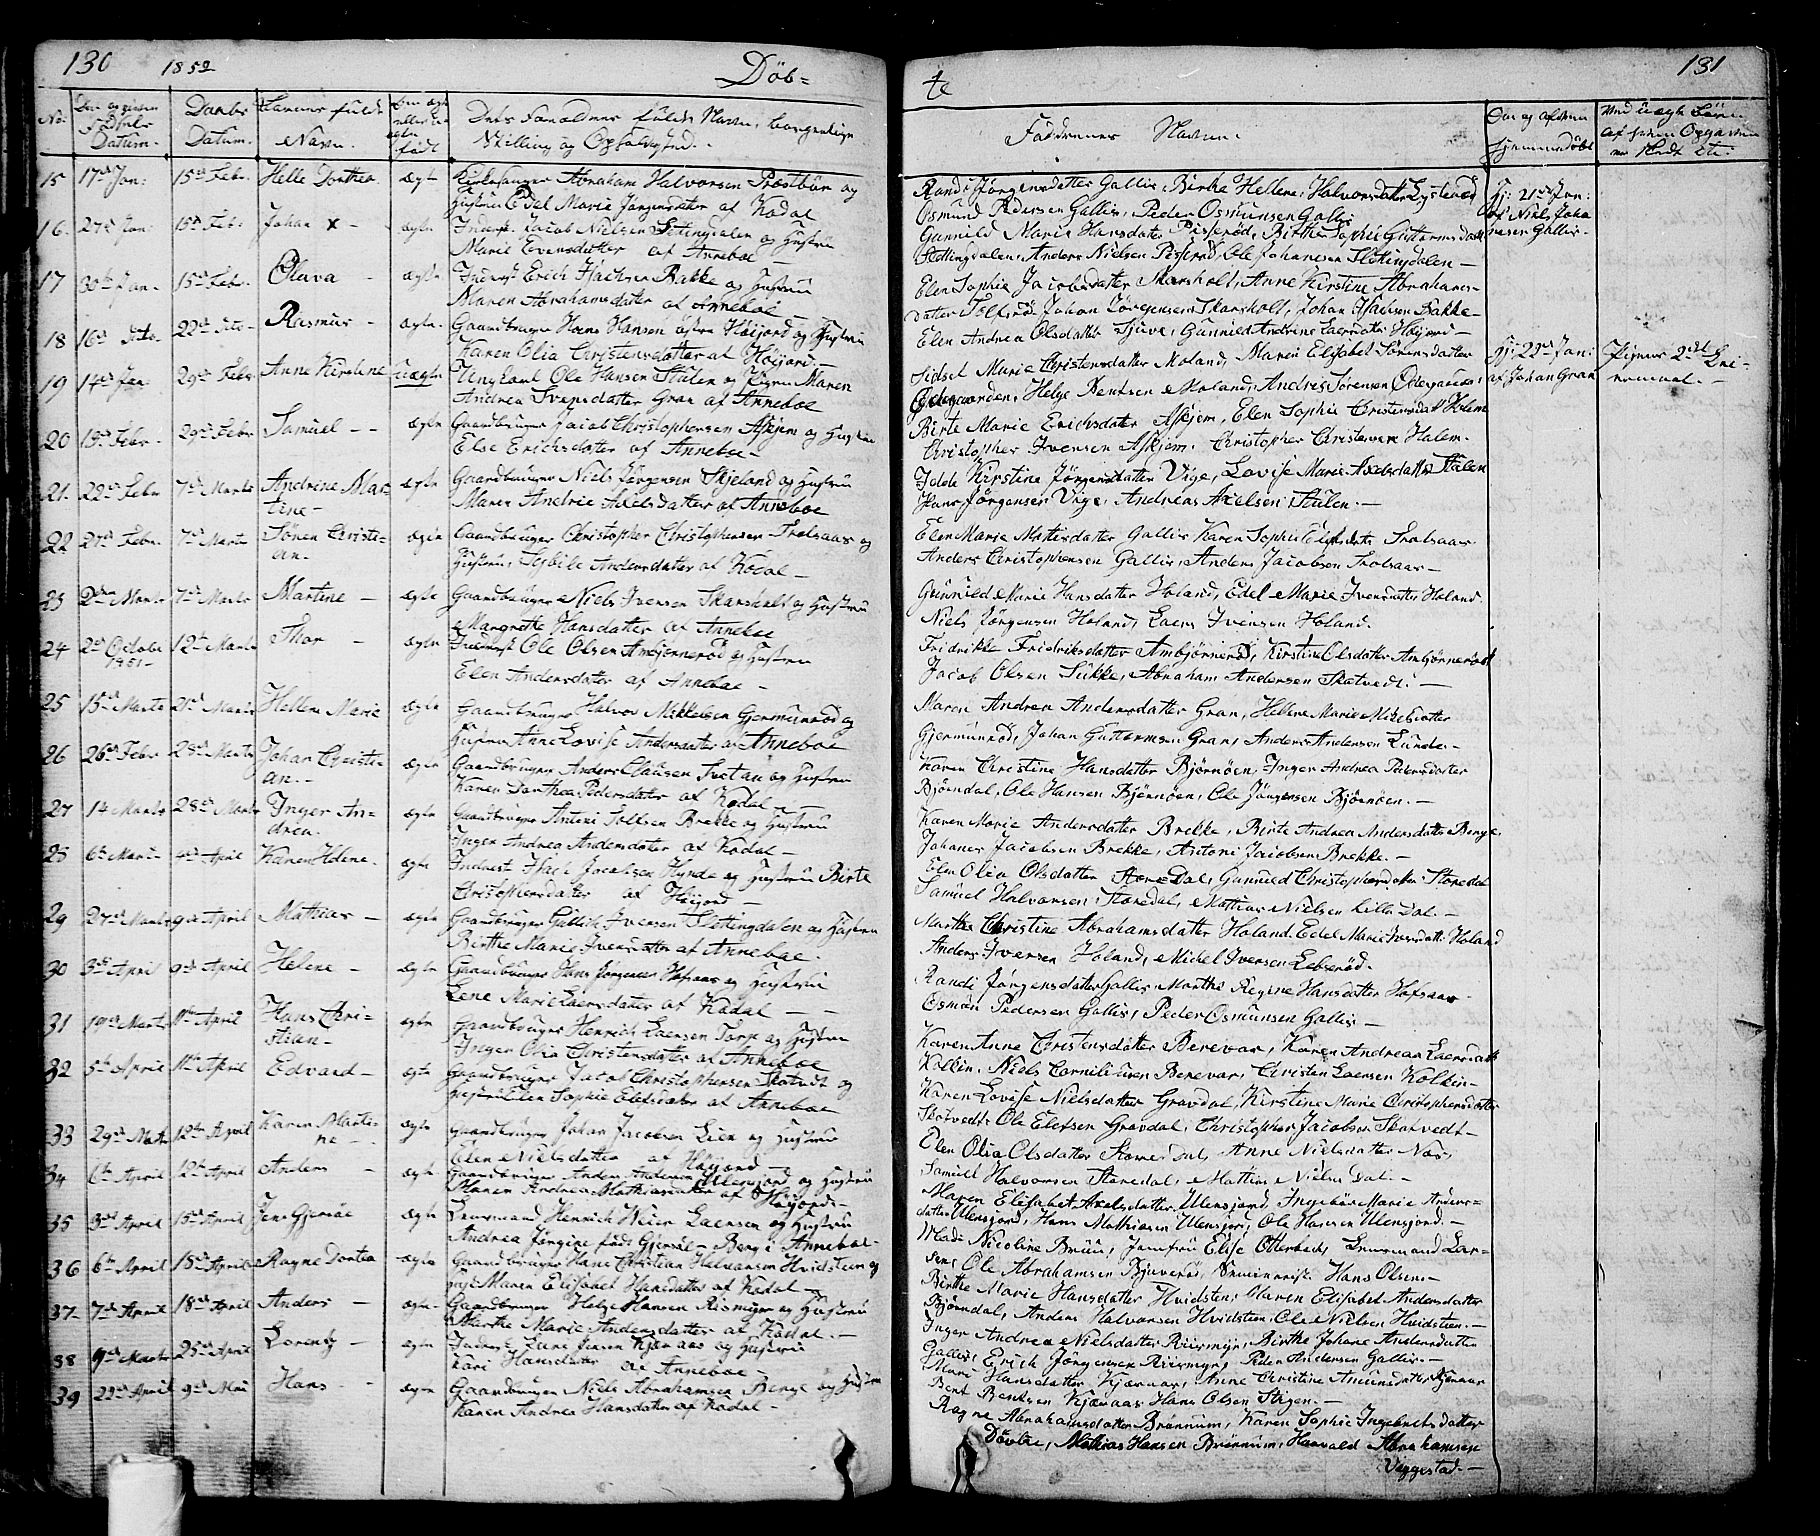 130 1852 Döb=
No. Datum. Daabs Datum. Navn. født Stilling og Opholdssted.
15 17de Jan: 15de Febr. Helle Dorthea ægte Kirkesanger Abraham Halvorsen Præstbøe og
Hustru Edel Marie Jörgensdatter af Kodal
16. 27de Jan: 15de Febr: Johan x – ægte Inderst Jacob Nielsen Slettingdalen og Hustru
Marie Evensdatter af Anneboe –
17 30te Jan. 15de Febr. Olava – ægte Inderst Erich Isachsen Bakke og Hustru
Maren Abrahamsdatter af Anneboe –
18 16de 22de Rasmus – ægte. Gaardbruger Hans Hansen Høijord og Hustru
Karen Olia Christensdatter af Höijord –
19 14de Jan 29de Febr. Anne Kirstine Uægte Ungkarl Ole Hansen Stulen og Pigen Maren
Andrea Svensdatter Gran af Anneboe
20 13de Febr. 29de Febr Samuel – – ægte Gaardbruger Jacob Christophersen Askjem og Hustru
Else Erichsdatter af Anneboe –
21. 22de Febr 7de Marts Andrine Mar= ægte Gaardbruger Niels Jörgensen Skjeland og Hustru
tine – Maren Andrie Axelsdatter af Anneboe
22 27de Febr. 7de Marts Sören Christi= ægte Gaardbruger Christopher Christophersen Trolsaas og
an. – Hustru Sybille Andersdatter af Kodal –
23 2den Marts 7de Marts Martine – ægte Gaardbruger Niels Iversen Skarsholt og Hustru
Margrethe Hansdatter af Anneboe
24 2de Octobr 12te Marts Thor – ægte Inderst Ole Olsen Ambjørnerød og Hustru
1851 – Elen Andersdatter af Anneboe –
25 15de Marts 21de Marts Hellene Marie ægte Gaardbruger Halvor Mikkelsen Gjermunrød og
Hustru Anne Lovise Andersdatter af Anneboe
26 26de Febr 28de Marts Johan Christi= ægte Gaardbruger Anders Clausen Svetan og Hustru
an. – Karen Dorthea Pedersdatter af Kodal –
27 14 Marts 28de Marts Inger An= ægte Gaardbruger Antoni Brekke og Hustru
drea. Inger Andrea Andersdatter af Kodal –
28 6te Marts 4de April Karen Helene. ægte Inderst Isach Jacobsen Hynde og Hustru Birte
Christophersdatter af Höijord –
29 27de Marts 9de April Mathias – ægte Gaardbruger Iversen Slettingdalen og Hustru
Birthe Marie Iversdatter af Anneboe.
30 3die April 9de April Helene – ægte Gaardbruger Hans Jörgensen Hofsaas og Hustru
Lene Marie Laersdatter af Kodal – –
31 19de Marts 11te April Hans Chri= ægte Gaardbruger Henrich Laersen Torp og Hustru
stian – Inger Olia Christensdatter af Anneboe
32 5te April 11te April Edvard – ægte Gaardbruger Jacob Christophersen Skatvedt og
Hustru Elen Sophie Elefsdatter af Anneboe
33 29de Marts 12te April Karen Marti= ægte Gaardbruger Johan Jacobsen Lien og Hustru
ne – Elen Nielsdatter af Höijord –
34 6te April 12te April Anders – ægte Gaardbruger Anders Andersen Ulensjord og Hustru
Maren Andrea Mathiasdatter af Höijord –
35 3die April 15de April Jens Gjersøe ægte Lensmand Henrich Weier Laersen og Hustru
Andrea Jörgine født Gjersøe – Berg i Anneboe –
36 6te April 18de April Ragne Dortea ægte Gaardbruger Hans Christian Halvorsen Hvidsteen og
Hust. Maren Elisabet Hansdatter af Kodal –
37. 7de April 18de April Anders – ægte. Gaardbruger Helge Hansen Riismyr og Hustru
Marthe Marie Andersdatter af Kodal. –
38 9de Marts 25de April Lorentz – ægte Inderst Jensen Kjæraas og Hustru
Kari Hansdatter af Anneboe
39 22de April 9de Mai Hans – ægte Gaardbruger Niels Abrahamsen Berge og Hustru
Karen Andrea Hansdatter af Kodal –
te 131
Faddernes Navne.
Randi Jörgensdatter Gallis, Birthe Hellene Halvorsdatter Lysterød Hj: 21de Jan:
Osmund Pedersen Gallis, Peder Osmunsen Gallis af Niels Joha
Gunnild Marie Hansdatter Pisserød, Birthe Sophie Guttormsdatt nesen Gallis.
Slettingdalen, Anders Nielsen Pisserød, Ole Johansen Slettingdalen –
Elen Sophie Jacobsdatter Skarsholt, Anne Kirstine Abrahams=
datter Johan Jörgensen Skarsholt, Johan Isachsen Bakke –
Elen Andrea Olsdatter Sjuve, Gunnild Andrine Laersdatr Höijord –
Sidsel Marie Christensdatter Moland, Maren Elisabet Sörensdatter Hj: 22de Jan: Pigens 2det Lei=
Ödegaarden, Helge Bentsen Moland, Andris Sörensen Ödegaarden; af Johan Gran ermaal. –
Birte Marie Erichsdatter Askjem, Elen Sophie Christensdatt Holem
Christopher Iversen Askjem, Christopher Christensen Halem.
Idde Kirstine Jörgensdatter Vige, Lovise Marie Axelsdatter Stulen
Hans Jörgensen Vige, Andreas Axelsen Stulen. –
Elen Marie Mathisdatter Gallis Karen Sophie Trolsaas
Anders Christophersen Gallis, Anders Jacobsen Trolsaas –
Gunnild Marie Hansdatter Holand, Edel Marie Iversdatter Holand.
Niels Jörgensen Holand, Laers Iversen Holand.
Fridrikke Fridriksdatter Ambjørnerød, Kirstine Olsdatter Ambjørnerød
Jacob Olsen Sukke, Abraham Andersen Skatvedt. –
Maren Andrea Andersdatter Gran, Hellene Marie Mikelsdatter
Gjermunrød, Johan Guttormsen Gran, Anders Andersen Lunde. –
Karen Christine Hansdatter Bjørnøen, Inger Andrea Pedersdatter
Bjørndal, Ole Hansen Bjørnøen, Ole Jörgensen Bjørnøen. –
Karen Marie Andersdatter Brekke, Birte Andrea Andersdatter Berge
Johanes Jacobsen Brekke, Antoni Jacobsen Brekke. –
Elen Olia Olsdatter Store Dal, Gunnild Christophersdatter Storedal
Samuel Halvorsen Storedal, Mathias Nielsen Lille Dal. –
Marthe Christine Abrahamsdatter Holand. Edel Marie Iversdatt. Holand
Anders Iversen Holand, Michel Iversen Lebserød.
Randi Jörgensdatter Gallis Marthe Regine Hansdatter Hofsaas
Osmon Pedersen Gallis, Peder Osmunsen Gallis –
Karen Anne Christensdatter Berevar, Karen Andrea Laersdatt
Kolkin, Niels Corneliusen Berevar, Christen Laersen Kolkin –
Karen Lovise Nielsdatter Gravdal, Kirstine Marie Christophersdatter
Skotvedt, Ole Elefsen Gravdal, Christopher Jacobsen Skotvedt –
Elen Olia Olsdatter Storedal, Anne Nielsdatter Næs,
Samuel Halvorsen Storedal, Mathias Nielsen Dal. –
Maren Elisabet Axelsdatter Ulensjord, Ingebør Marie Anders=
datter Ulensjord, Hans Mathiasen Ulensjord, Ole Hansen Ulensjord. –
Mad: Nicoline Bruun, Jomfru Elise Otterbech, Lensmand Lar=
sen, Ole Abrahamsen Bjuerød, Seminarist Hans Olsen –
Birthe Marie Hansdatter Hvidsten, Maren Elisabet Andersdatter
Bjørndal, Anders Halvorsen Hvidsteen, Ole Nielsen Hvidsteen. –
Inger Andrea Nielsdatter Riismyr, Birthe Johane Andersdatter
Gallis, Erich Jörgensen Riismyr, Peder Andersen Gallis. –
Mari Hansdatter Kjæraas, Anne Christine Amunsdatter Kjæraas
Bent Bentsen Kjæraas Hans Olsen Stigen. –
Ragne Abrahamsdatter Brønnum, Karen Sophie Ingebretsdatter
Døvle, Mathias Hansen Brønnum, Haavald Abrahamsen
Viggestad. –